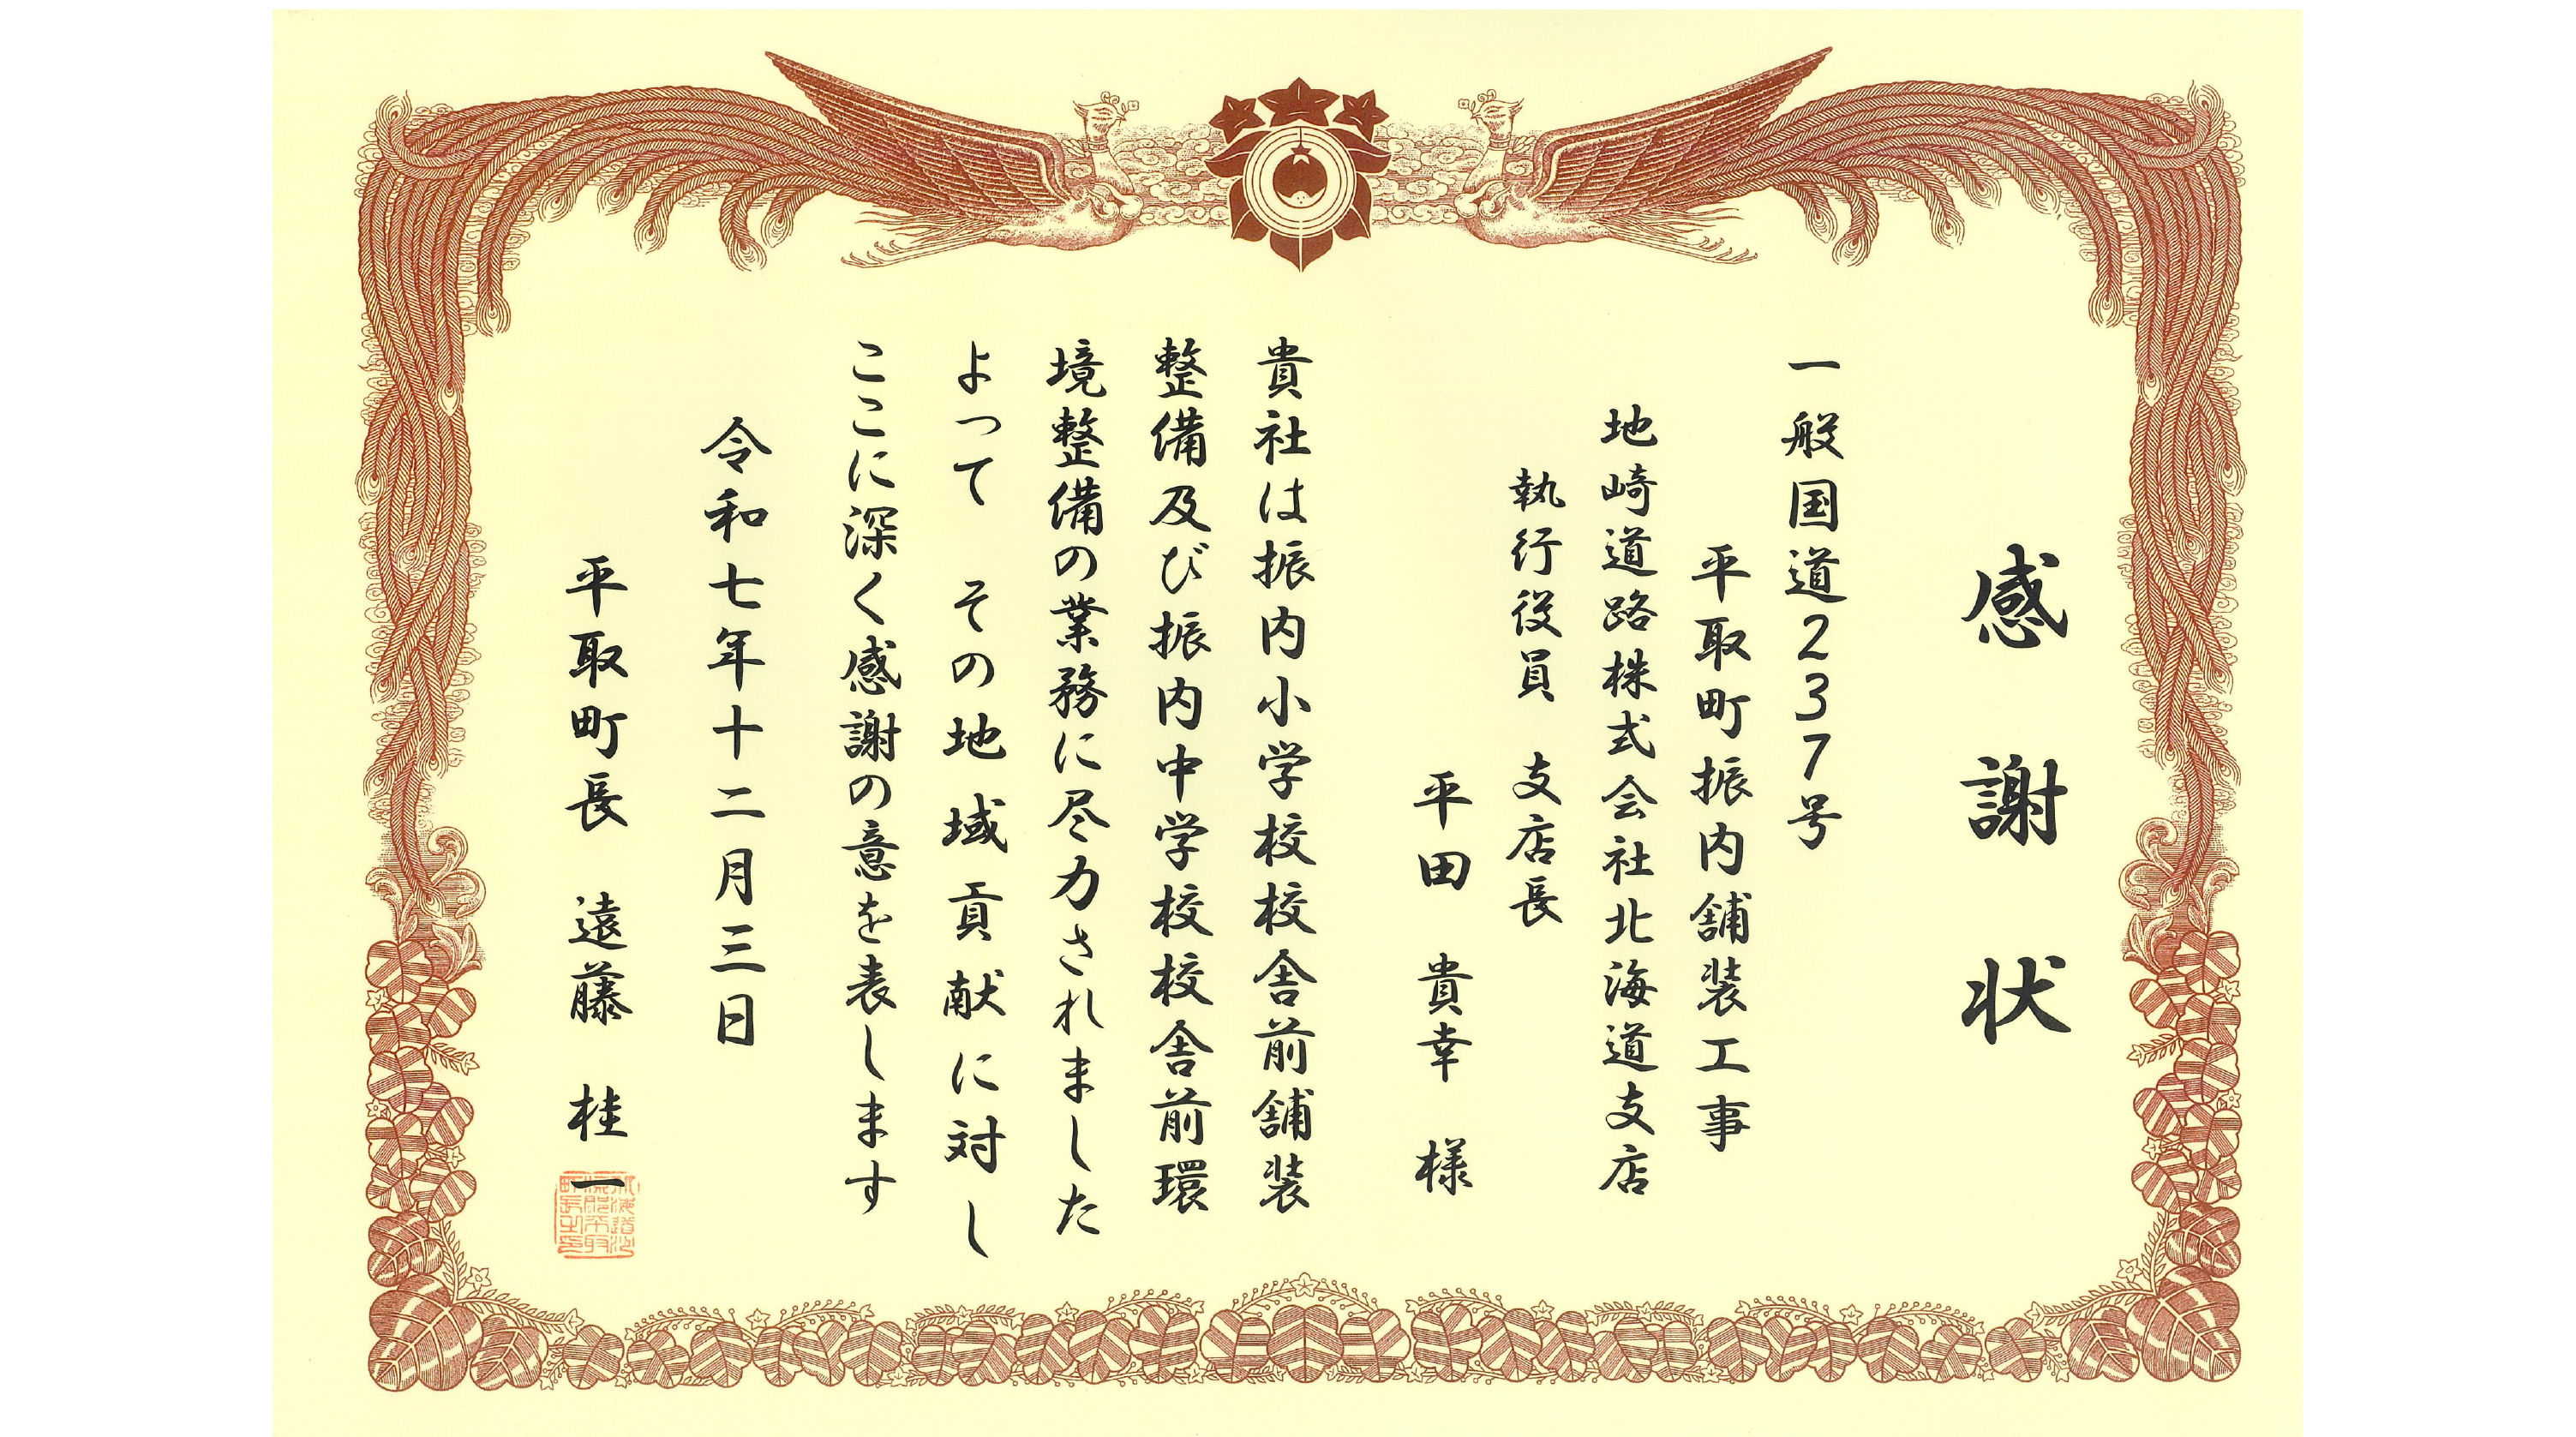 感謝状
一般国道237号
平取町振内舗装工事
地崎道路株式会社北海道支店
執行役員　支店長
平田　貴幸　様
貴社は振内小学校校舎前舗装
整備及び振内中学校校舎前環
境整備の業務に尽力されました
よって　その地域貢献に対し
ここに深く感謝の意を表します
令和七年十二月三日
平取町長　遠藤　桂一